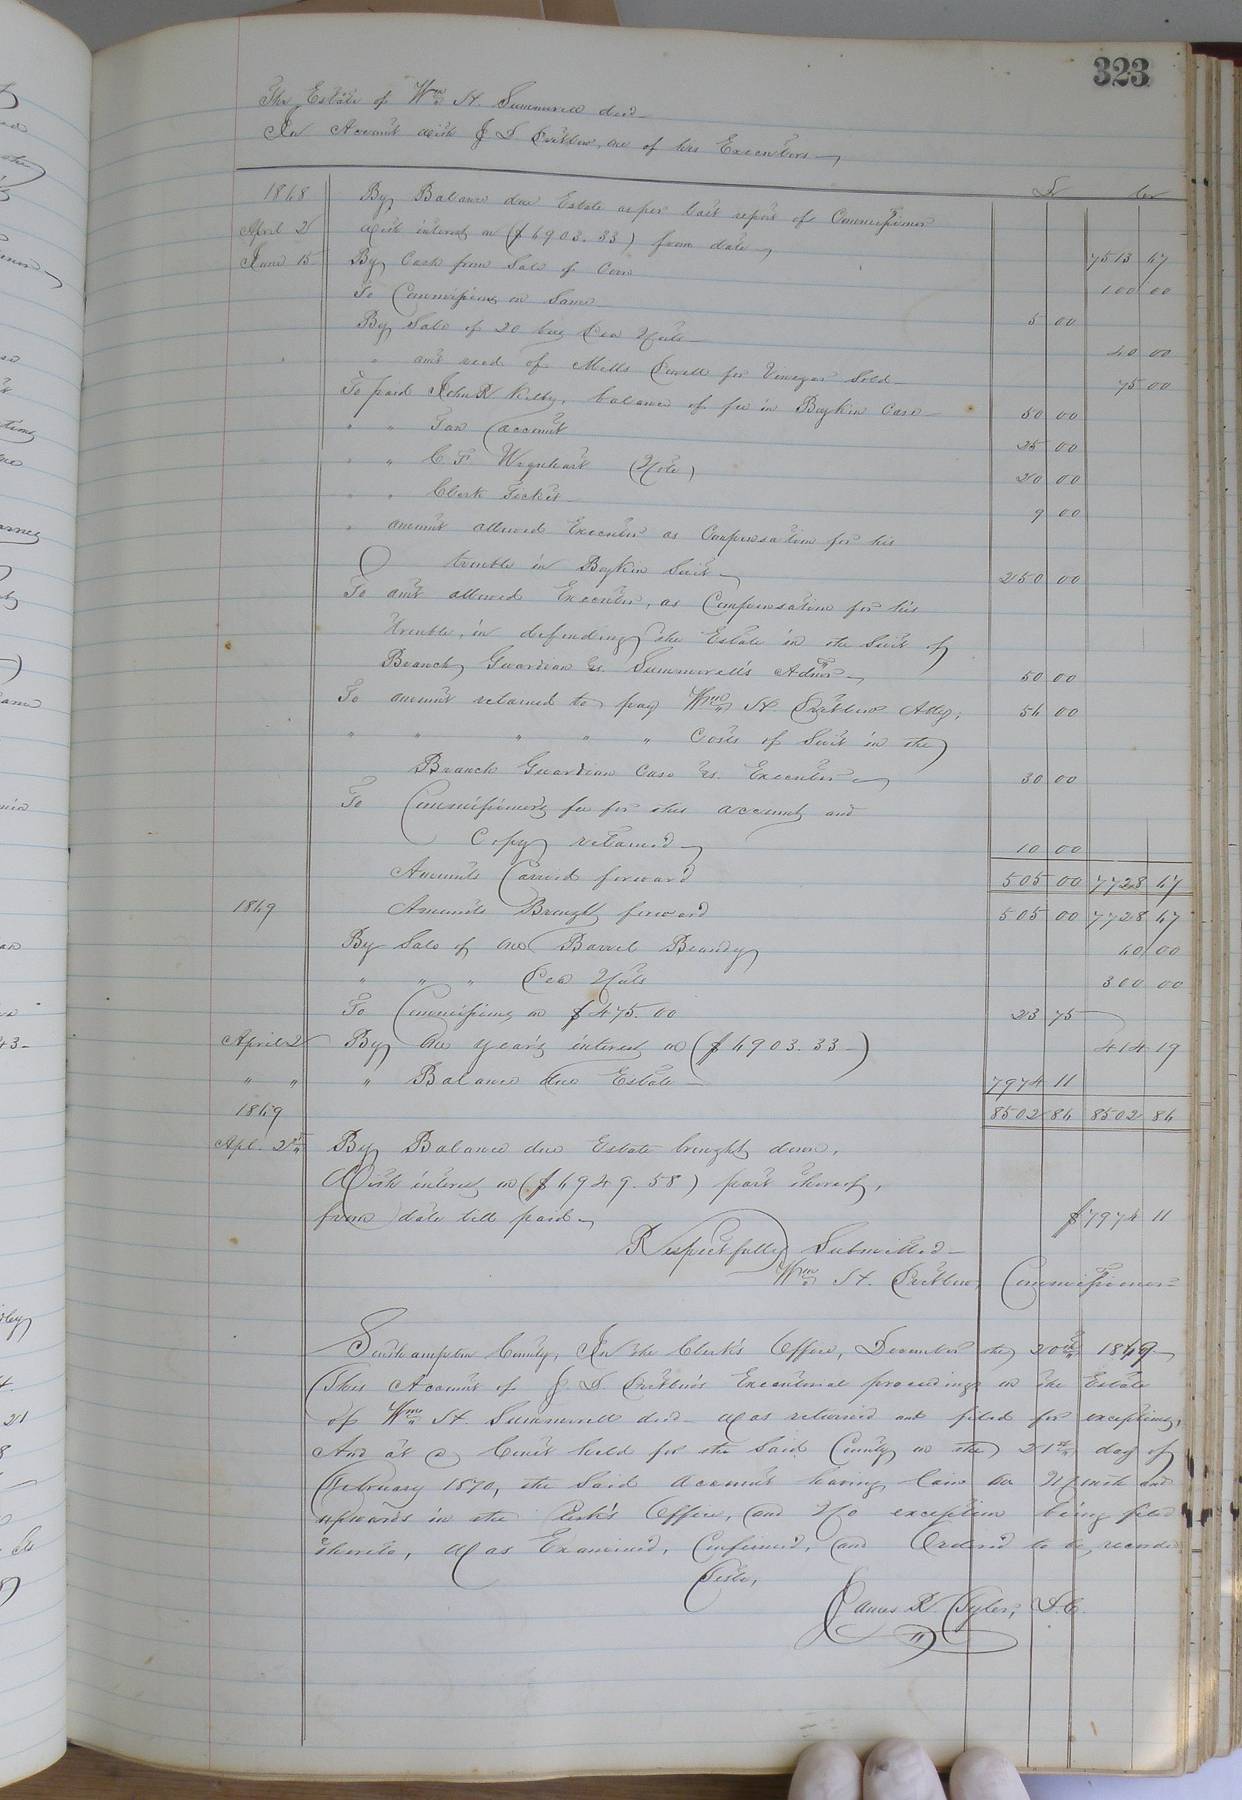 323
The Estate of Wm H. Summerell decd
In Account with J D Pretlow, one of his Executors
Dr Cr
1868 By Balance due Estate as per last report of Commissioner
April 2 with interest on ($6903.33) from date 7513 47
June 15 By Cash from Sale of Corn 100 00
To Commissions on Same 5 00
By Sale of 20 bus Pea Nuts 40 00
" amt recd of Mills Powell for Vinegar Sold 75 00
To paid John R Kilby, balance of fee in Boykin Case 50 00
" " Tax account 25 00
" " C. F. Urquhart (Note) 20 00
" " Clerk Ticket 9 00
" amount allowed Executor as Compensation for his
trouble in Boykin Suit 250 00
To amt allowed Executor, as Compensation for his
trouble, in defending the Estate in the Suit of
Branch, Guardian vs. Summerell's Admor 50 00
To amount retained to pay Wm H. Pretlow Atty, 56 00
" " " " " Costs of Suit in the
Branch Guardian Case vs. Executor 30 00
To Commissioners fee for this account and
Copy returned 10 00
Amounts Carried forward 505 00 7728 47
1869 Amounts Brought forward 505 00 7728 47
By Sale of one Barrel Brandy 60 00
" " " Pea Nuts 300 00
To Commissions on $475.00 23 75
April 2 By One years interest on ($6903.33) 414 19
" " " Balance due Estate 7974 11
1869 8502 86 8502 86
Apl. 2nd By Balance due Estate brought down,
With interest on ($6949.58) part thereof,
from date till paid $7974 11
Respectfully Submitted
Wm H. Pretlow, Commissioner
Southampton County, In the Clerk's Office, December the 20th 1869
This Account of J. D. Pretlow's Executorial proceedings on the Estate
of Wm H. Summerell decd was returned and filed for exceptions,
And at a Court held for the Said County on the 21st day of
February 1870, the Said account having lain one Month and
upwards in the Clerk's Office, and No exceptions being filed
thereto, Was Examined, Confirmed, and Ordered to be recorded
Teste,
James R. Tyler, D.C.